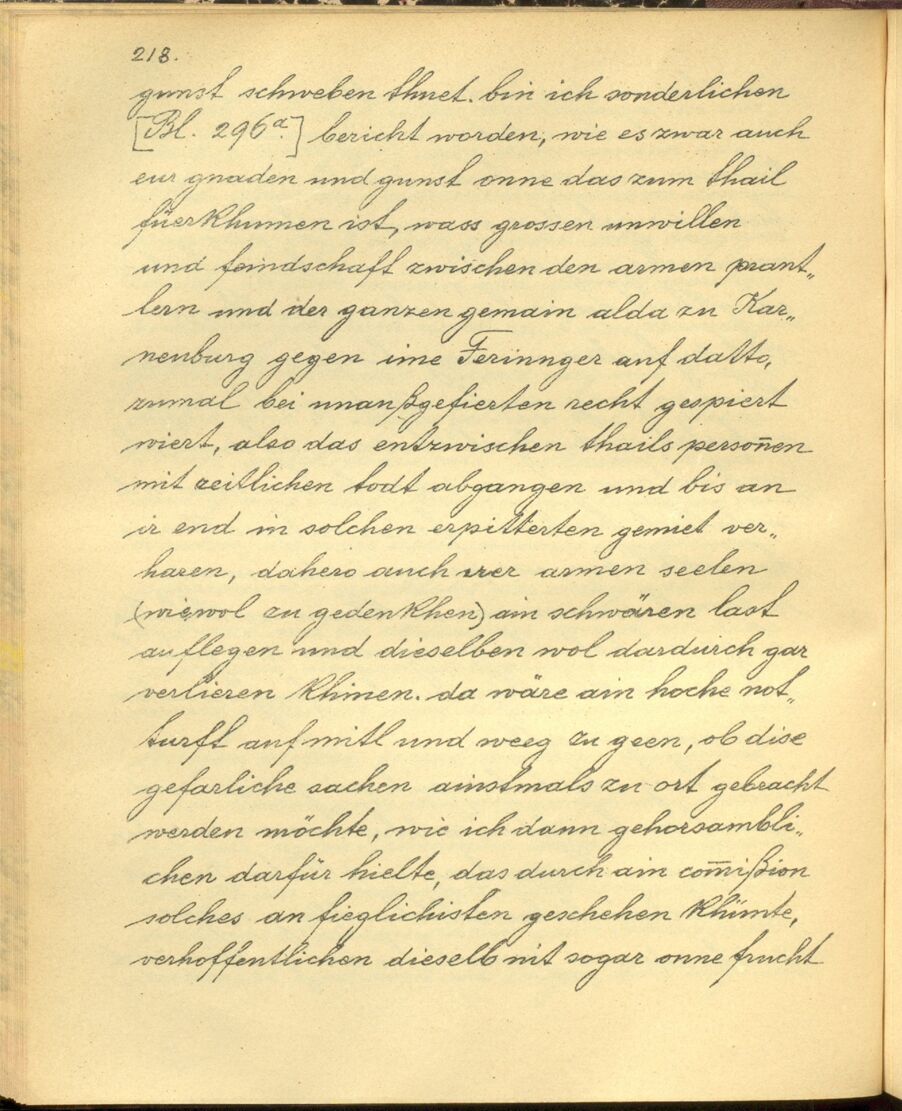 218.
gunst schweben thuet. bin ich sonderlichen
[Bl. 296a.] bericht worden, wie es zwar auch
eur gnaden und gunst onne das zum thail
füerkhumen ist, wass grossen unwillen
und feindschaft zwischen den armen prant„
lern und der ganzen gemain alda zu Kar„
nenburg gegen ime Ferinnger auf datto,
zumal bei unaußgefierten recht gespiert
wiert, also das entzwischen thails persoñen
mit zeitlichen todt abgangen und bis an
ir end in solchen erpitterten gemiet ver„
haren, dahero auch irer armen seelen
(wiewol zu gedenkhen) ain schwären last
auflegen und dieselben wol dardurch gar
verlieren khinen. da wäre ain hoche not„
turft auf mitl und weeg zu geen, ob dise
gefarliche sachen ainstmals zu ort gebracht
werden möchte, wie ich dann gehorsambli„
chen darfür hielte, das durch ain com̄ißion
solches an fieglichisten geschehen khünte,
verhoffentlichen dieselb nit sogar onne frucht